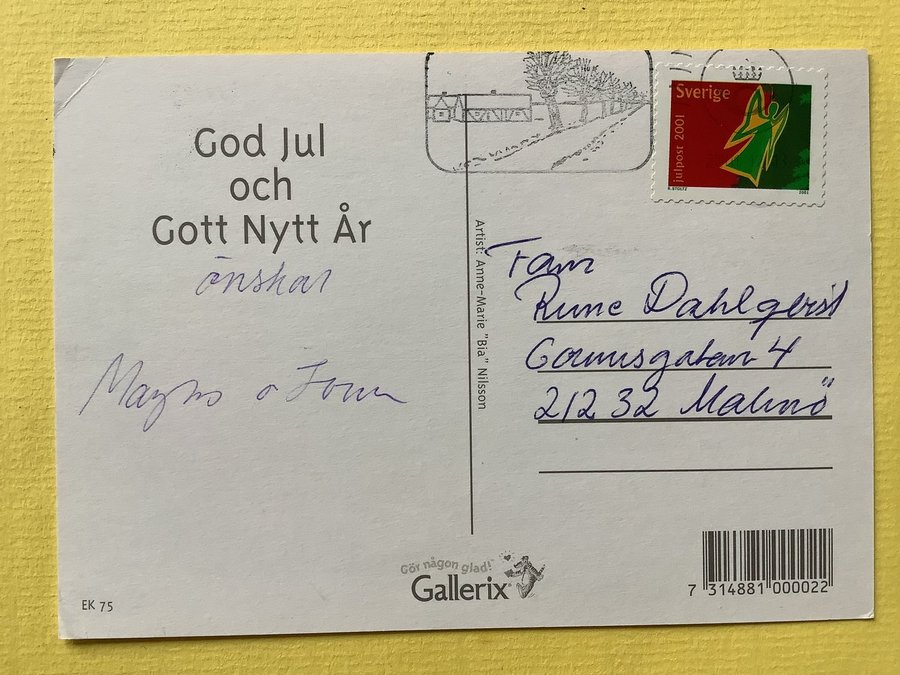 God Jul
och
Gott Nytt År
önskar
Magnus o Fam
Sverige
julpost 2001
2001
Artist: Anne-Marie "Bia" Nilsson
Fam
Rune Dahlqvist
4
212 32 Malmö
Gör någon glad!
Gallerix
EK 75
7 314881 000022